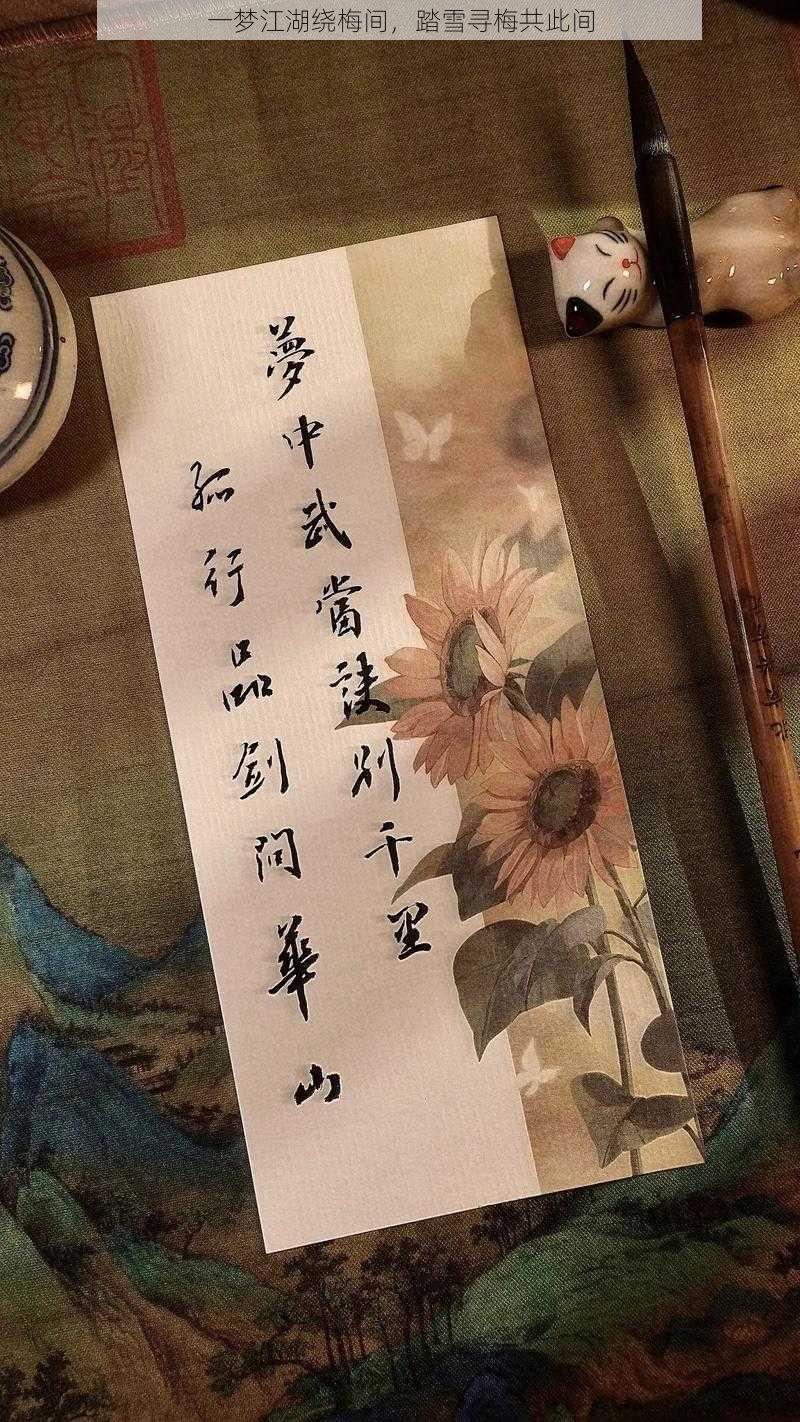 一梦江湖绕梅间，踏雪寻梅共此间
夢中武當誤别千里
孤行品剑問華山